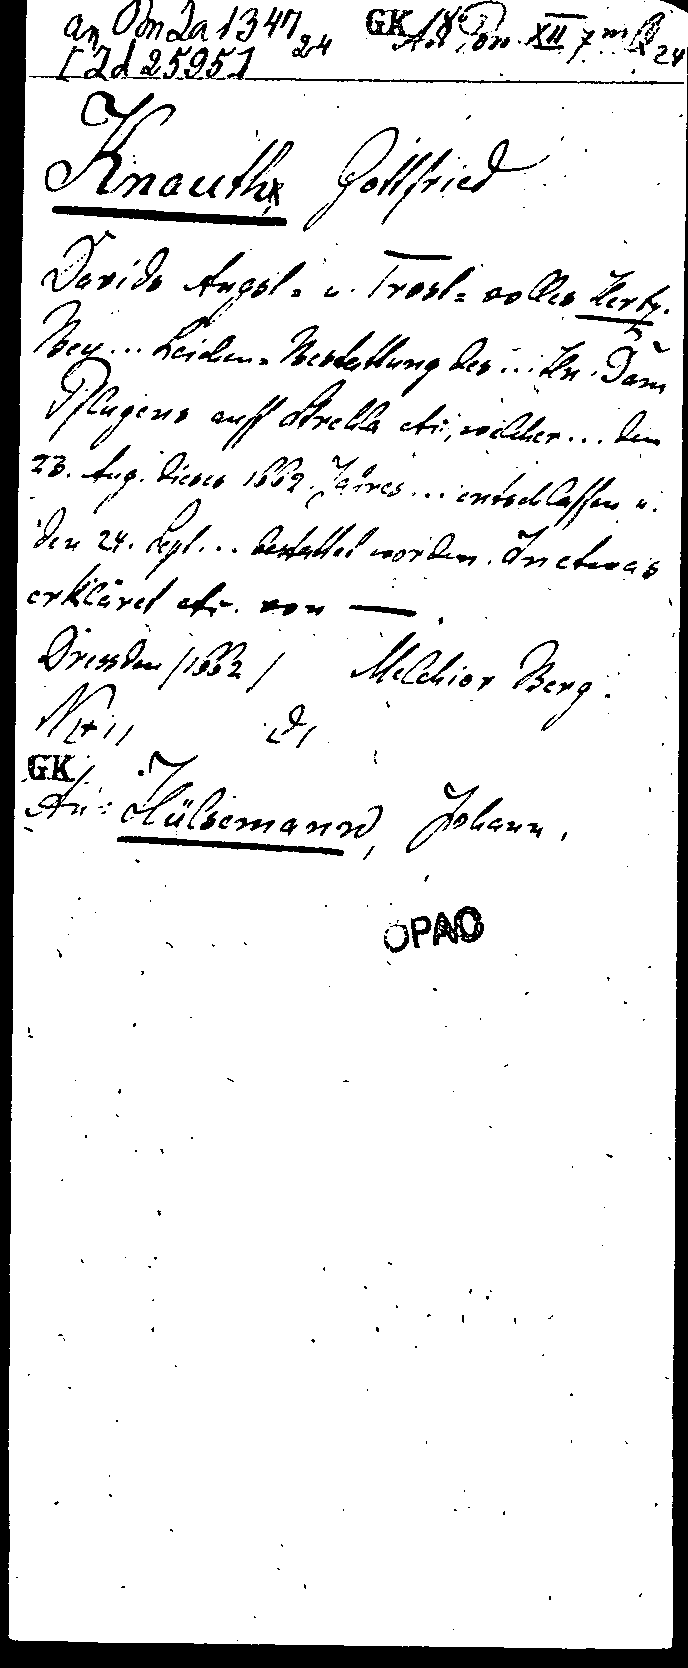 an Bn 2a 1347 24 GK An Pon. XII 7 m R 24
[Zd 2595]
Knauth, Gottfried
Davids Angst= u. Trost= volles Hertz.
Bey... Leichen=Bestattung des... Hn. Dam
Pflugens auff Strella etc., welcher... den
23. Aug. dieses 1662. Jahres... entschlaffen u.
den 24. Sept... bestattet worden. In etwas
erkläret etc. von —.
Dresden /1662/ Melchior Berg.
GK
An: Hülsemann, Johann.
OPAC